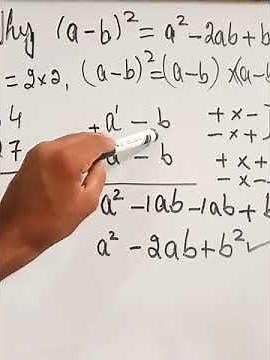 Why (a-b)² = a² - 2ab + b
= 2×2, (a-b)² = (a-b) × (a-b
4 + a¹ - b + × -
7 a - b - × +
+ × +
- × -
a² - 1ab - 1ab + b
a² - 2ab + b² ✓